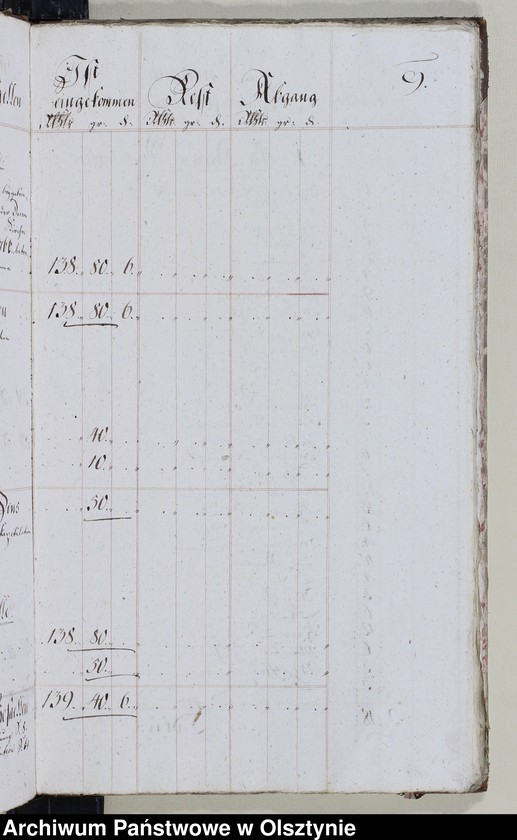 9.
Ist
eingekommen Rest Abgang
Rthlr gr. d. Rthlr gr. d. Rthlr gr. d.
138. 80. 6.
138. 80. 6.
40.
10.
50.
138. 80.
50.
139. 40. 6.
Archiwum Państwowe w Olsztynie